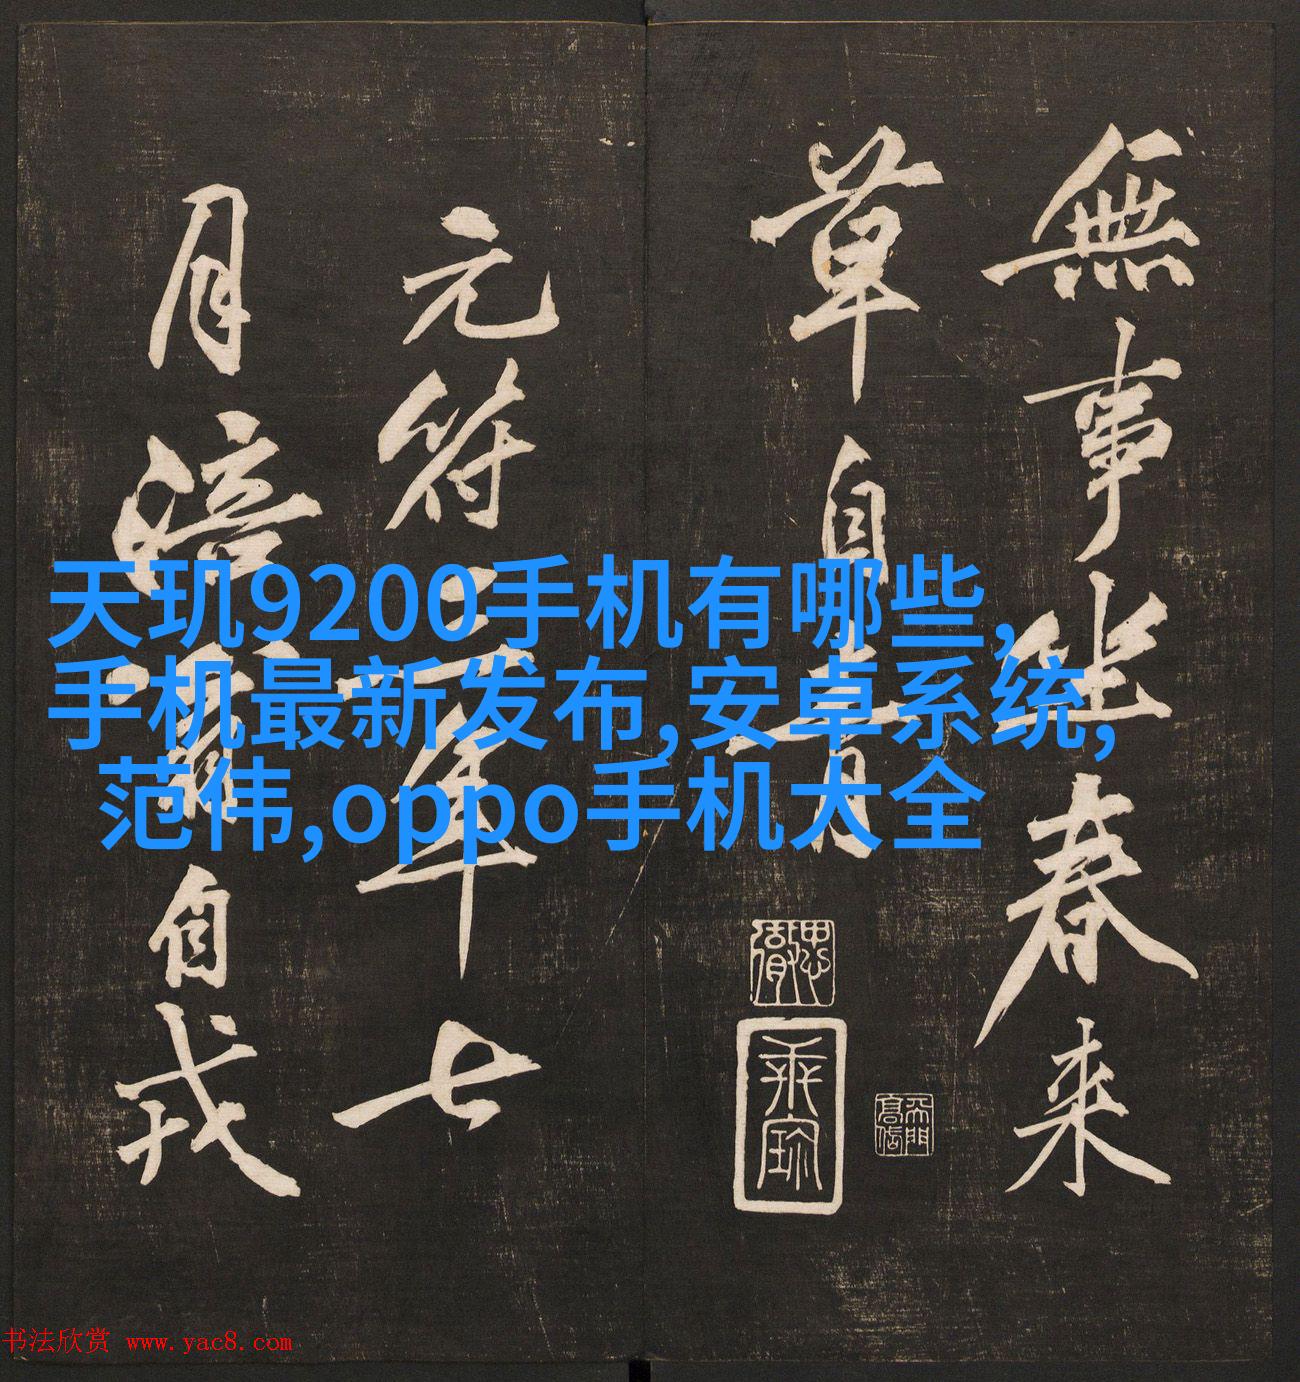 無事此坐春来
草自青
元符二年七
月涪翁自戎
天玑9200手机有哪些,
手机最新发布,安卓系统,
范伟,oppo手机大全
书法欣赏 www.yac8.com